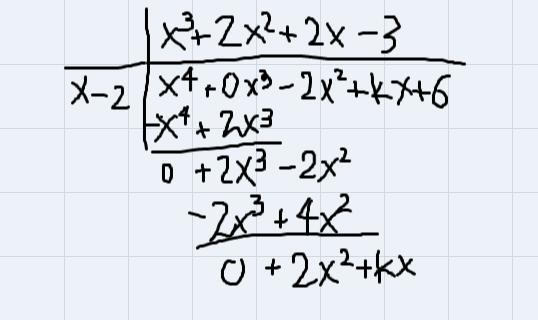 x³+2x²+2x-3
x-2 x⁴+0x³-2x²+kx+6
-x⁴+2x³
0 +2x³-2x²
-2x³+4x²
0 +2x²+kx